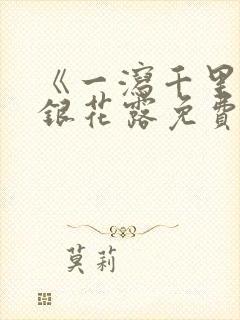 《一瀉千里
銀花露免費
莫莉